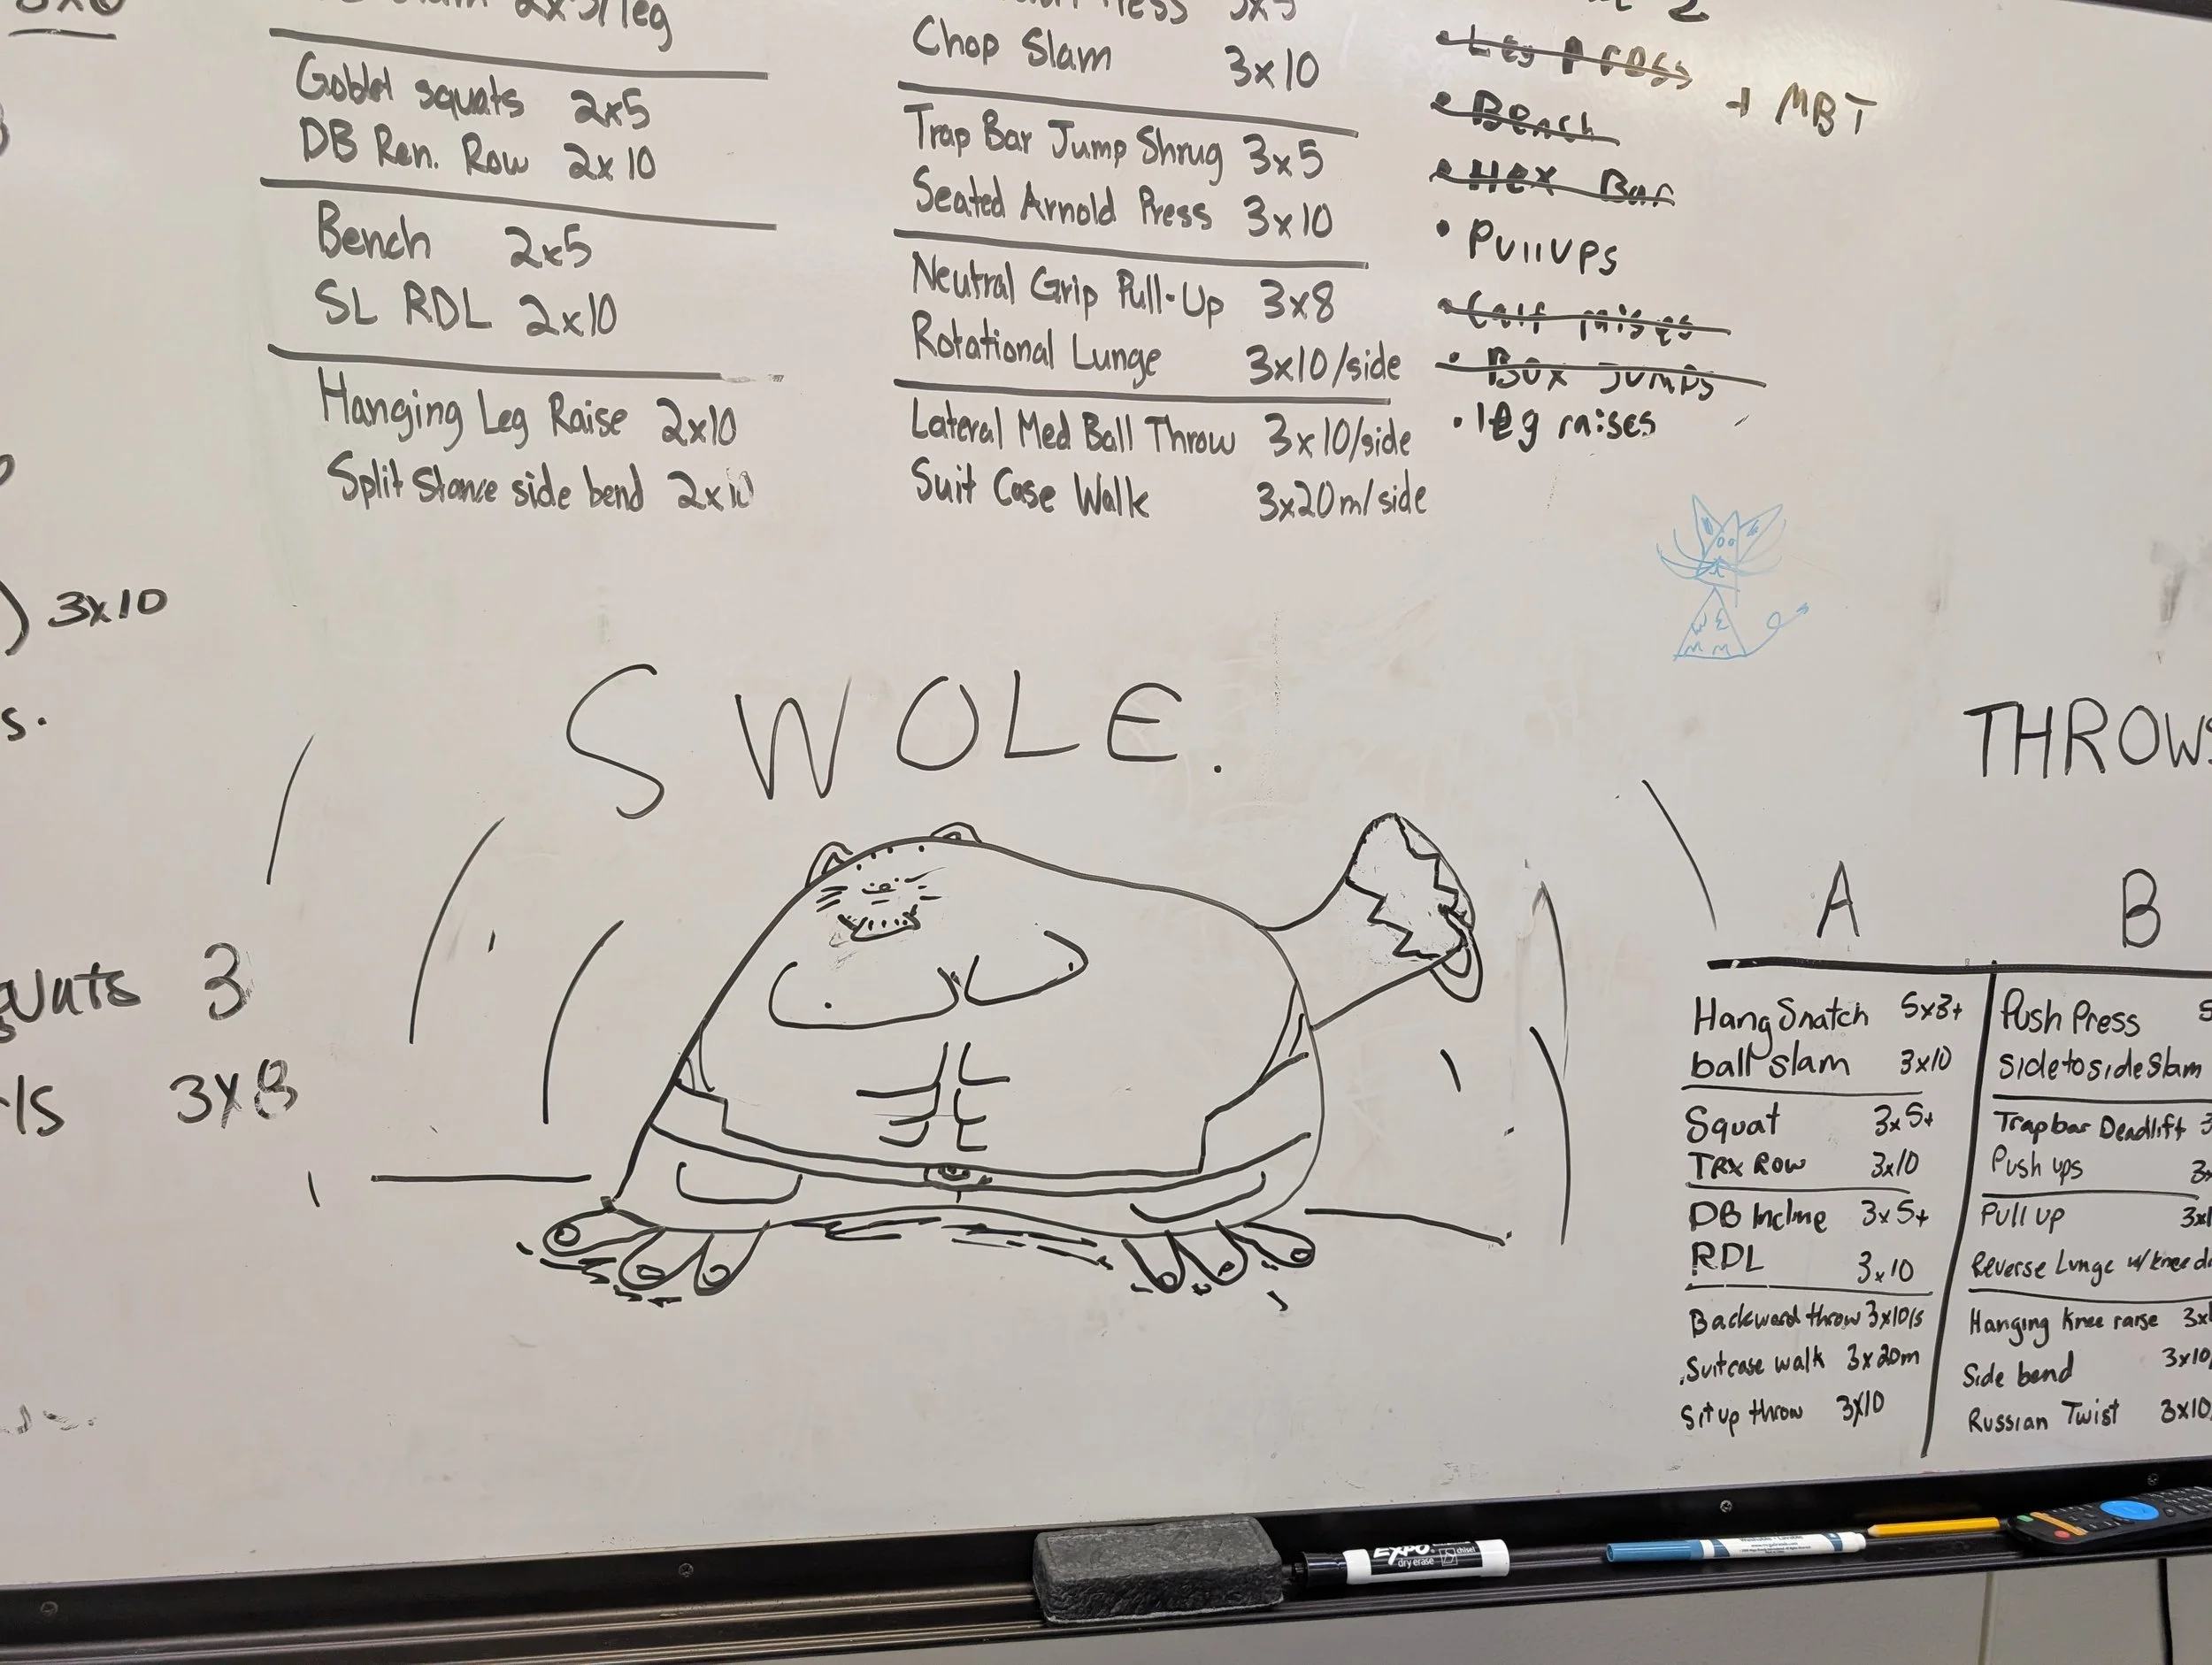 2x5/leg
Goblet squats 2x5
DB Ren. Row 2x10
Bench 2x5
SL RDL 2x10
Hanging Leg Raise 2x10
Split Stance side bend 2x10
3x5
Chop Slam 3x10
Trap Bar Jump Shrug 3x5
Seated Arnold Press 3x10
Neutral Grip Pull-Up 3x8
Rotational Lunge 3x10/side
Lateral Med Ball Throw 3x10/side
Suit Case Walk 3x20m/side
2
• Leg Press
+ MBT
• Bench
• Hex Bar
• Pullups
• Calf raises
• Box Jumps
• leg raises
) 3x10
s.
3
3x8
SWOLE.
THROWS
A
Hang Snatch 5x3+
ball slam 3x10
Squat 3x5+
TRX Row 3x10
DB Incline 3x5+
RDL 3x10
Backward throw 3x10/s
Suitcase walk 3x20m
Sit up throw 3x10
B
Push Press
side to side Slam
Trap bar Deadlift 3
Push ups
Pull up
Reverse Lunge w/ knee
Hanging knee raise
Side bend 3x10/
Russian Twist 3x10
EXPO
dry erase
chisel